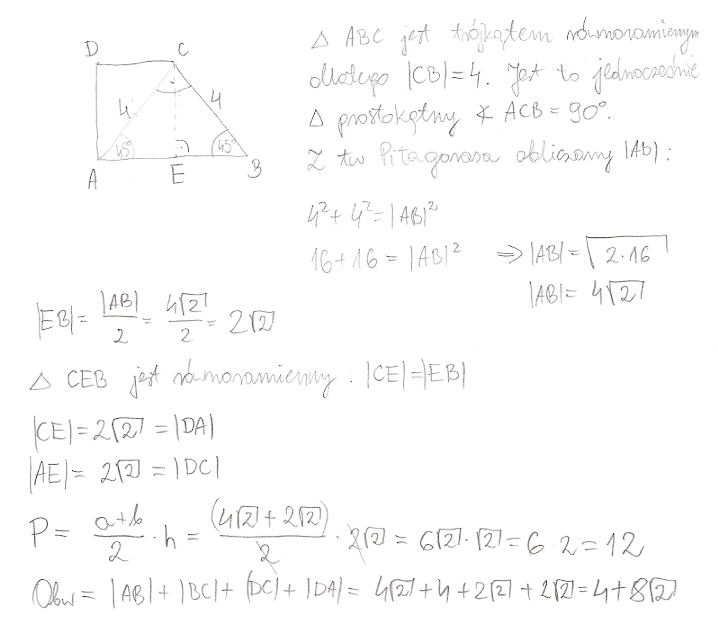 D C
4 4
45° 45°
A E B
△ ABC jest trójkątem równoramiennym
dlatego |CB|=4. Jest to jednocześnie
△ prostokątny ∢ ACB = 90°.
Z tw Pitagorasa obliczamy |Ab| :
4² + 4² = |AB|²
16+16 = |AB|² ⇒ |AB| = √(2·16)
|AB| = 4√2
|EB| = |AB|/2 = 4√2/2 = 2√2
△ CEB jest równoramienny : |CE|=|EB|
|CE| = 2√2 = |DA|
|AE| = 2√2 = |DC|
P = (a+b)/2 · h = (4√2 + 2√2)/2 · 2√2 = 6√2 · √2 = 6·2 = 12
Obw = |AB| + |BC| + |DC| + |DA| = 4√2 + 4 + 2√2 + 2√2 = 4 + 8√2